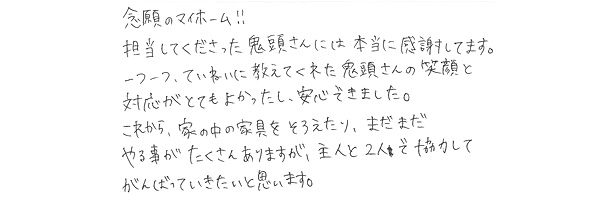 念願のマイホーム!!
担当してくださった鬼頭さんには本当に感謝してます。
一つ一つ、ていねいに教えてくれた鬼頭さんの笑顔と
対応がとてもよかったし、安心できました。
これから、家の中の家具をそろえたり、まだまだ
やる事がたくさんありますが、主人と2人で協力して
がんばっていきたいと思います。